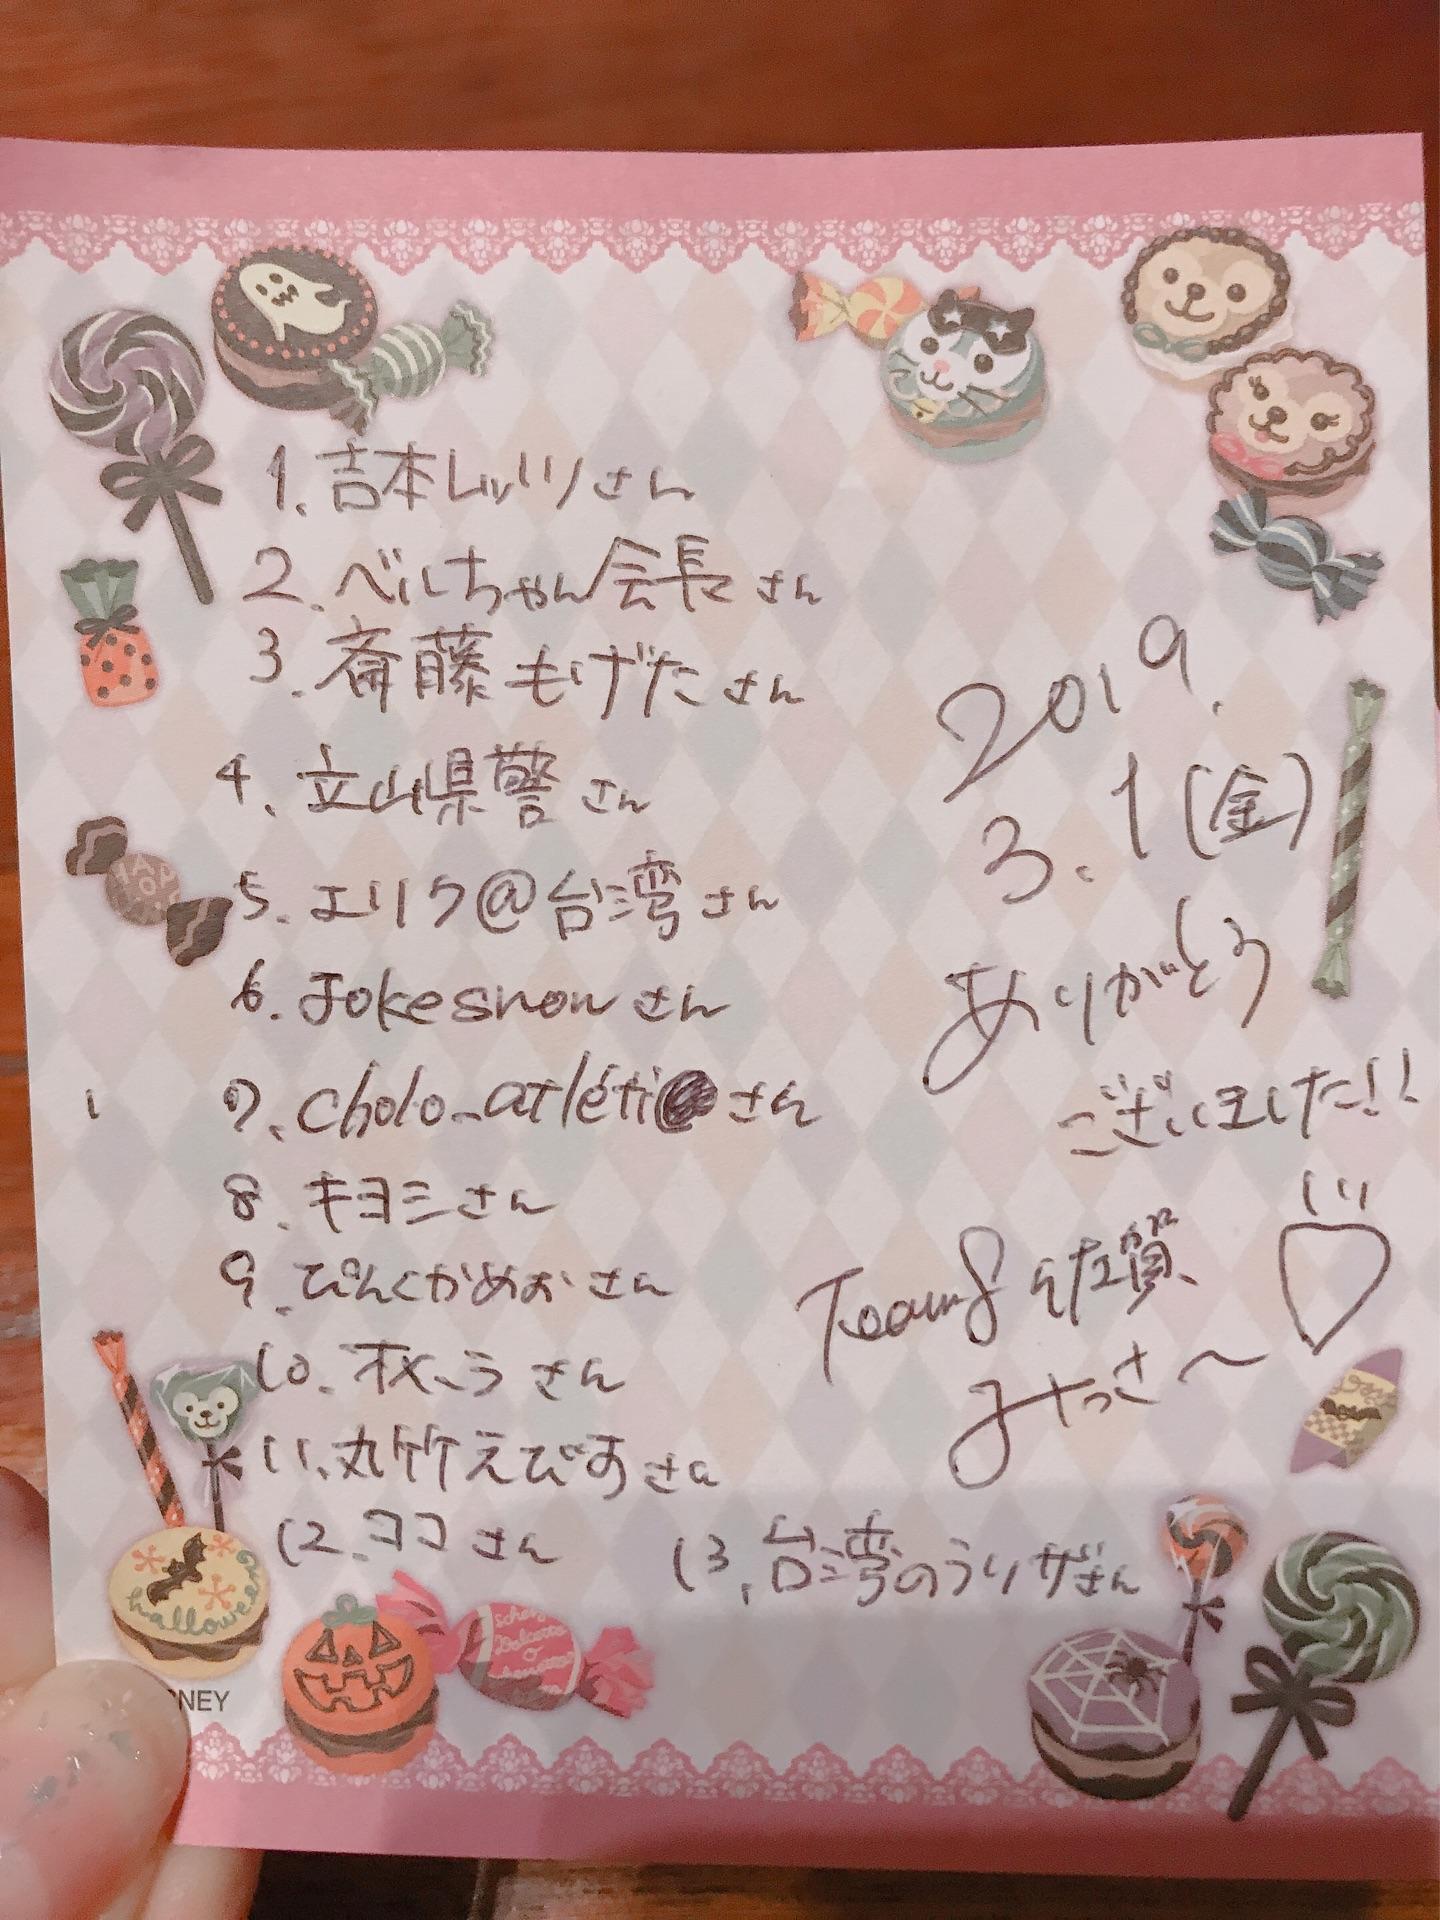 1. 吉本レッツリさん
2. ベルちゃん会長さん
3. 斎藤もげたさん
4. 立山県警さん
5. エリク@台湾さん
6. Jokesnowさん
7. cholo_atlétiさん
8. キヨミさん
9. ぴんくかめおさん
10. さん
11. 丸竹えびすさん
12. ココさん
13. 台湾のうりザさん
2019.
3.1(金)
ありがとう
ございました!!
Team8 佐賀
みやっさ〜
halloween
NEY